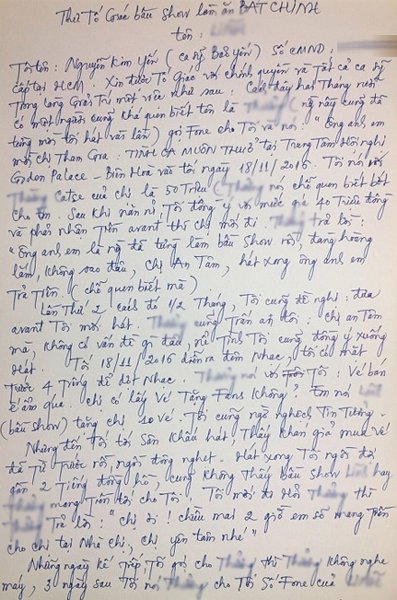 Thư Tố Giác bầu Show làm ăn BẤT CHÍNH
tên:
Tôi tên: Nguyễn Kim Yến (ca sỹ Bảo Yến) Số CMND:
cấp tại HCM. Xin được Tố Giác với chính quyền và Tất cả ca sỹ
Trong làng Giải Trí một việc như sau: Cách đây hai Tháng rưỡi
có một người cũng khá quen biết tên là (ng này cũng đã
từng mời tôi hát vài lần) gọi Fone cho Tôi và nói: "Ông anh em
mời chị Tham Gia: TÌNH CA MUÔN THUỞ tại Trung Tâm Hội nghị
Golden Palace - Biên Hoà vào tối ngày 18/11/2016. Tôi nói với
Catse của chị là 50 Triệu ( nói chỗ quen biết bớt
cho em. Sau khi năn nỉ Tôi đồng ý với mức giá 40 triệu đồng
và phải nhận Tiền avant thì chị mới đi. trả lời:
"Ông anh em là ng đã từng làm bầu Show rồi, đàng hoàng
lắm, không sao đâu, chị An Tâm, hát xong ông anh em
Trả Tiền (chỗ quen biết mà)
Lần Thứ 2 cách đó 1/2 Tháng, Tôi cũng đề nghị: đưa
avant Tôi mới hát. cũng Trấn an tôi. chị an tâm
mà, không có vấn đề gì đâu, nể Tình Tôi cũng đồng ý xuống
Hát. Tối 18/11/2016 diễn ra đêm Nhạc, tôi có mặt
Trước 4 Tiếng để dợt Nhạc. nói với Tôi: Vé bán
ế ẩm quá. chị có lấy Vé Tặng Fans không? Em nói
(bầu show) tặng chị 20 vé. Tôi cũng ngờ nghệch Tin Tưởng.
Nhưng đến Tối Tới Sân Khấu hát, Thấy khán giả mua vé
đã Từ Trước rồi, ngồi đông nghẹt. Hát xong Tôi ngồi đợi
gần 2 Tiếng đồng hồ, cũng không Thấy bầu Show hay
mang Tiền tới cho Tôi. Tôi mới đi Hỏi thì
Trả lời: "chị ơi! chiều mai 2 giờ em sẽ mang tiền
cho chị tại Nhà chị, chị yên tâm nhé"
Những ngày kế Tiếp Tôi gọi cho thì không nghe
máy, 3 ngày sau Tôi nói cho Tôi Số Fone của